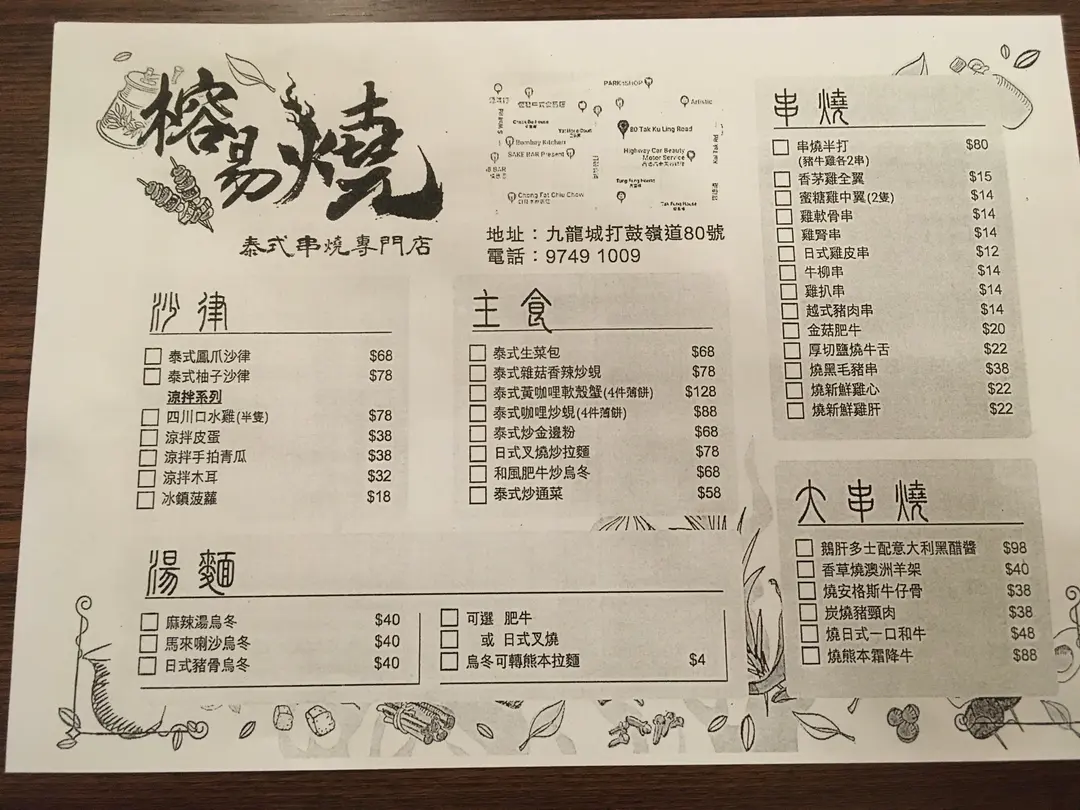 榕易燒
泰式串燒專門店
PARKnSHOP
Artistic
80 Tak Ku Ling Road
Bombay Kitchen
SAKE BAR Present
Highway Car Beauty
Motor Service
Tung Fung House
Chong Fat Chiu Chow
Tak Fung House
地址：九龍城打鼓嶺道80號
電話：9749 1009
沙律
泰式鳳爪沙律 $68
泰式柚子沙律 $78
涼拌系列
四川口水雞(半隻) $78
涼拌皮蛋 $38
涼拌手拍青瓜 $38
涼拌木耳 $32
冰鎮菠蘿 $18
主食
泰式生菜包 $68
泰式雜菇香辣炒蜆 $78
泰式黃咖哩軟殼蟹(4件薄餅) $128
泰式咖哩炒蜆(4件薄餅) $88
泰式炒金邊粉 $68
日式叉燒炒拉麵 $78
和風肥牛炒烏冬 $68
泰式炒通菜 $58
湯麵
麻辣湯烏冬 $40
馬來喇沙烏冬 $40
日式豬骨烏冬 $40
可選 肥牛
或 日式叉燒
烏冬可轉熊本拉麵 $4
串燒
串燒半打 $80
(豬牛雞各2串)
香茅雞全翼 $15
蜜糖雞中翼(2隻) $14
雞軟骨串 $14
雞腎串 $14
日式雞皮串 $12
牛柳串 $14
雞扒串 $14
越式豬肉串 $14
金菇肥牛 $20
厚切鹽燒牛舌 $22
燒黑毛豬串 $38
燒新鮮雞心 $22
燒新鮮雞肝 $22
大串燒
鵝肝多士配意大利黑醋醬 $98
香草燒澳洲羊架 $40
燒安格斯牛仔骨 $38
炭燒豬頸肉 $38
燒日式一口和牛 $48
燒熊本霜降牛 $88